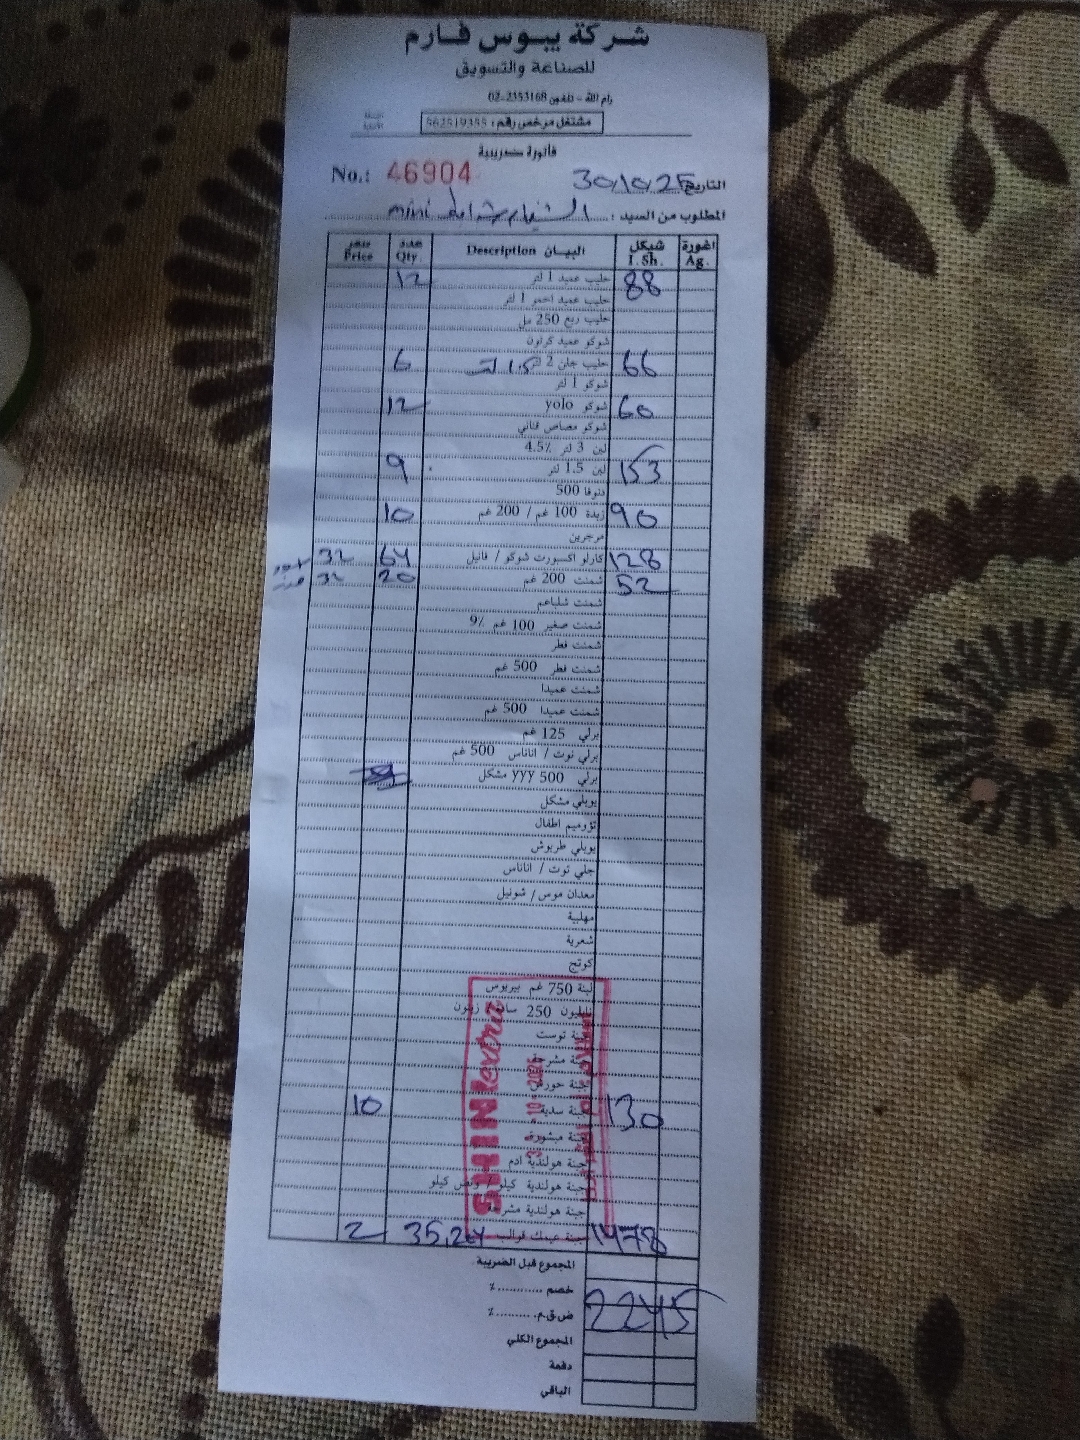 شركة يبوس فارم
للصناعة والتسويق
رام الله - تلفون 2353168-02
مشتغل مرخص رقم: 562519355
فاتورة ضريبية
No.: 46904
التاريخ 30/10/25
المطلوب من السيد : mini
سعر Price عدد Qty. البيان Description شيكل I. Sh. اغورة Ag.
حليب عميد 1 لتر 12 88
حليب عميد احمر 1 لتر
حليب ربع 250 مل
شوكو عميد كرتون
حليب جلن 2 لتر 1.5 لتر 6 66
شوكو 1 لتر
شوكو yolo 12 60
شوكو مصاص قناني
لبن 3 لتر 4.5%
لبن 1.5 لتر 9 153
دنوفا 500
زبدة 100 غم / 200 غم 10 90
مرجرين
كارلو اكسبورت شوكو / فانيل 64 32 128
شمنت 200 غم 20 32 52
شمنت شلباعم
شمنت صغير 100 غم 9%
شمنت فطر
شمنت فطر 500 غم
شمنت عميدا
شمنت عميدا 500 غم
برلي 125 غم
برلي توت / اناناس 500 غم
برلي yyy 500 مشكل
يوبلي مشكل
تؤوميم اطفال
يوبلي طربوش
جلي توت / اناناس
معدان موس / شوتيل
مهلبية
شعرية
كوتج
لبنة 750 غم بيريوس
250 زيتون
جبنة توست
جبنة
جبنة
جبنة 10 130
جبنة مبشورة
جبنة هولندية ادم
جبنة هولندية كيلو ونص كيلو
جبنة هولندية
جبنة عيمك قوالب 35,24 2 1478
SHINI extra
المجموع قبل الضريبة
خصم ........... %
ض.ق.م. ......... % 2245
المجموع الكلي
دفعة
الباقي